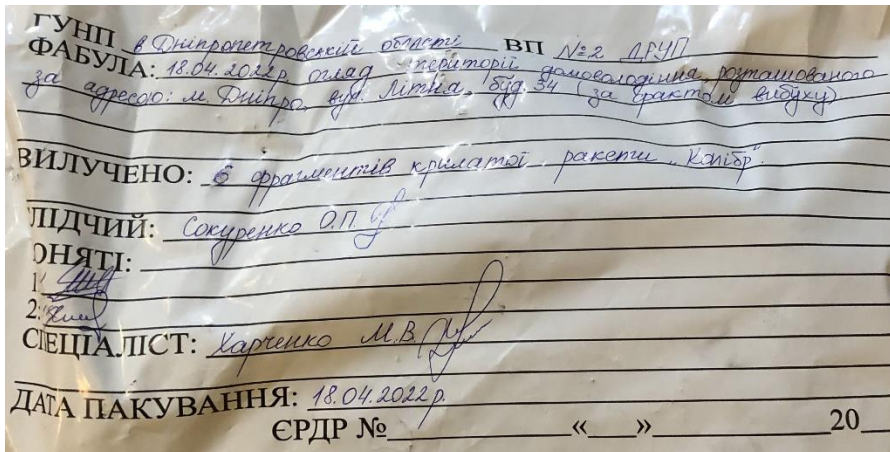 ГУНП в Дніпропетровській області ВП №2 ДРУП
ФАБУЛА: 18.04.2022р. огляд території домоволодіння, розташованого
за адресою: м. Дніпро, вул. Літня, буд. 34 (за фактом вибуху)
ВИЛУЧЕНО: 6 фрагментів крилатої ракети „Калібр“.
ЛІДЧИЙ: Сокуренко О.П.
ОНЯТІ:
1.
2.
СПЕЦІАЛІСТ: Харченко М.В.
ДАТА ПАКУВАННЯ: 18.04.2022р.
ЄРДР №____________«___»____________20__